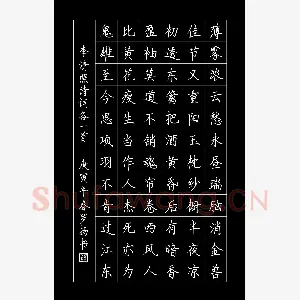 薄雾浓云愁永昼瑞脑消金兽
佳节又重阳玉枕纱厨半夜凉
初透东篱把酒黄昏后有暗香
盈袖莫道不销魂帘卷西风人
比黄花瘦生当作人杰死亦为
鬼雄至今思项羽不肯过江东
李清照诗词各一首 庚寅年 书
Shufawang.CN